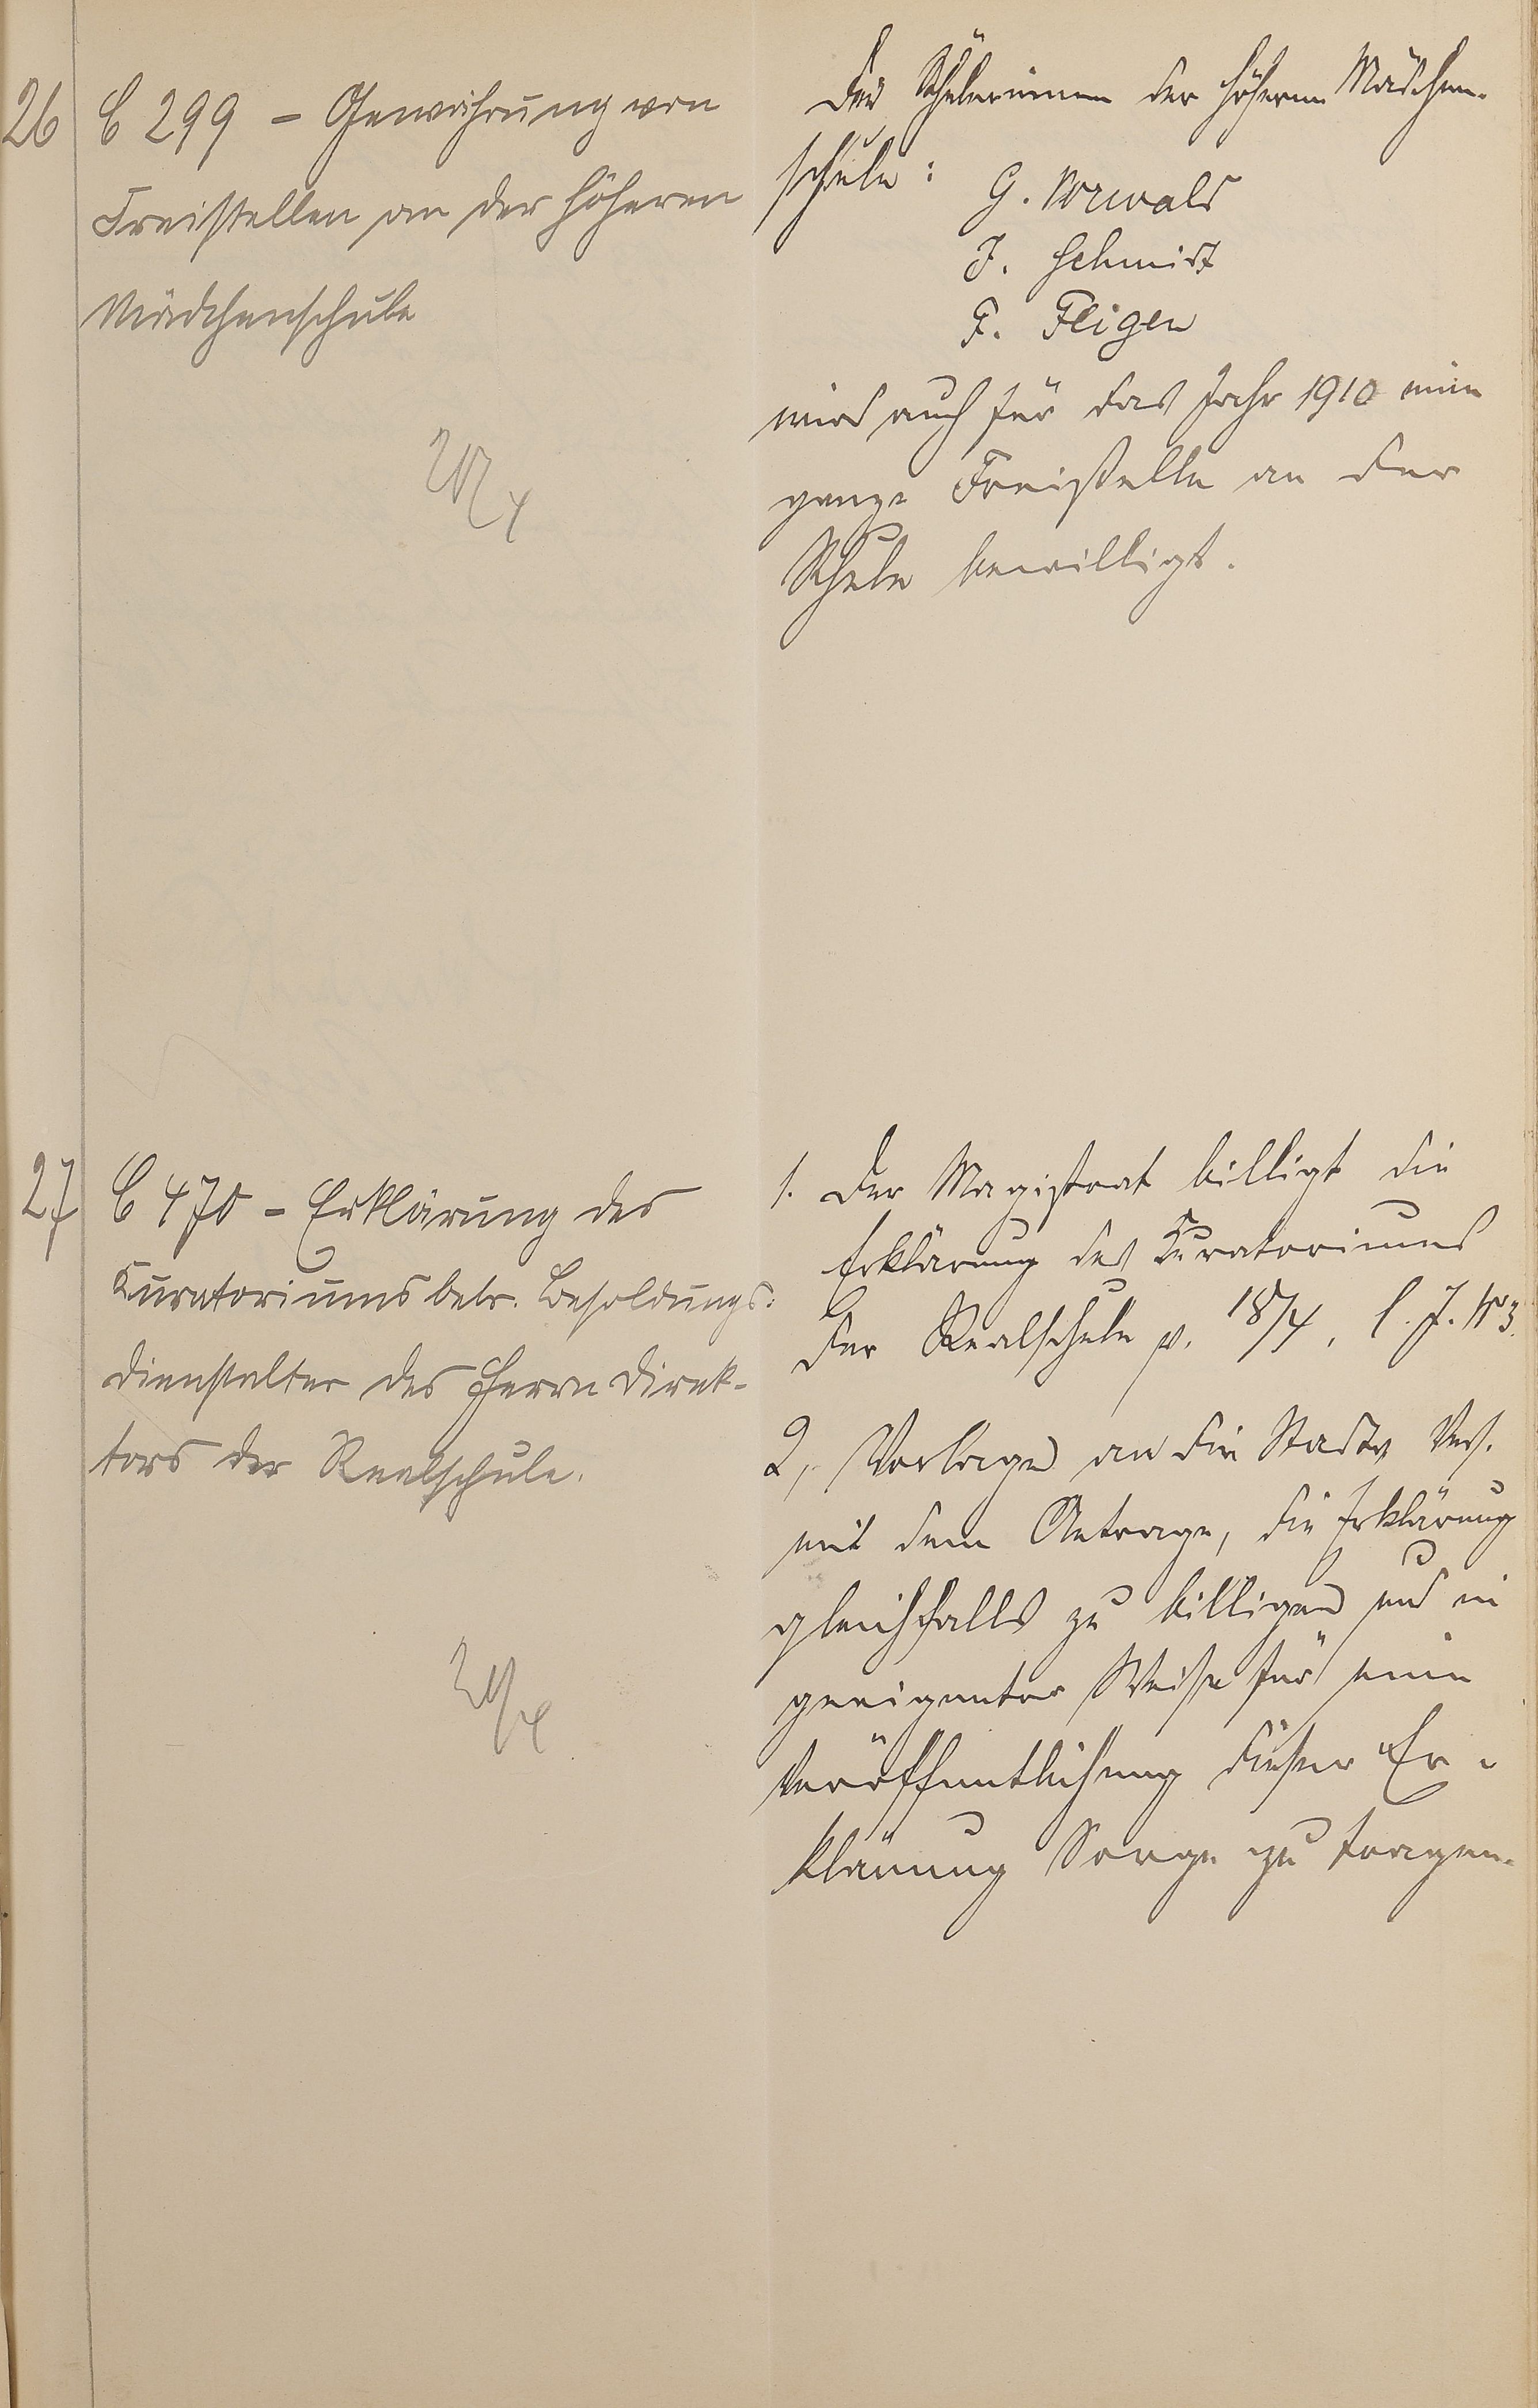 26
C 299 - Gewährung von
Freistellen an der höheren
Mädchenschule
Den Schülerinnen der höheren Mädchen-
schule:
G. Vorwald
J. Schmidt
F. Fligen
wird auch für das Jahr 1910 eine
ganze Freistelle an der
Schule bewilligt.
27
C 470 - Erklärung des
Kuratoriums betr. Besoldungs-
dienstalter des Herrn Direk-
tors der Realschule.
1. Der Magistrat billigt die
Erklärung des Kuratoriums
der Realschule v. 18/4, l. J. № 3.
2, Vorlage an die Stadtv. Vers.
mit dem Antrage, die Erklärung
gleichfalls zu billigen und in
geeigneter Weise für eine
Veröffentlichung dieser Er-
klärung Sorge zu tragen.